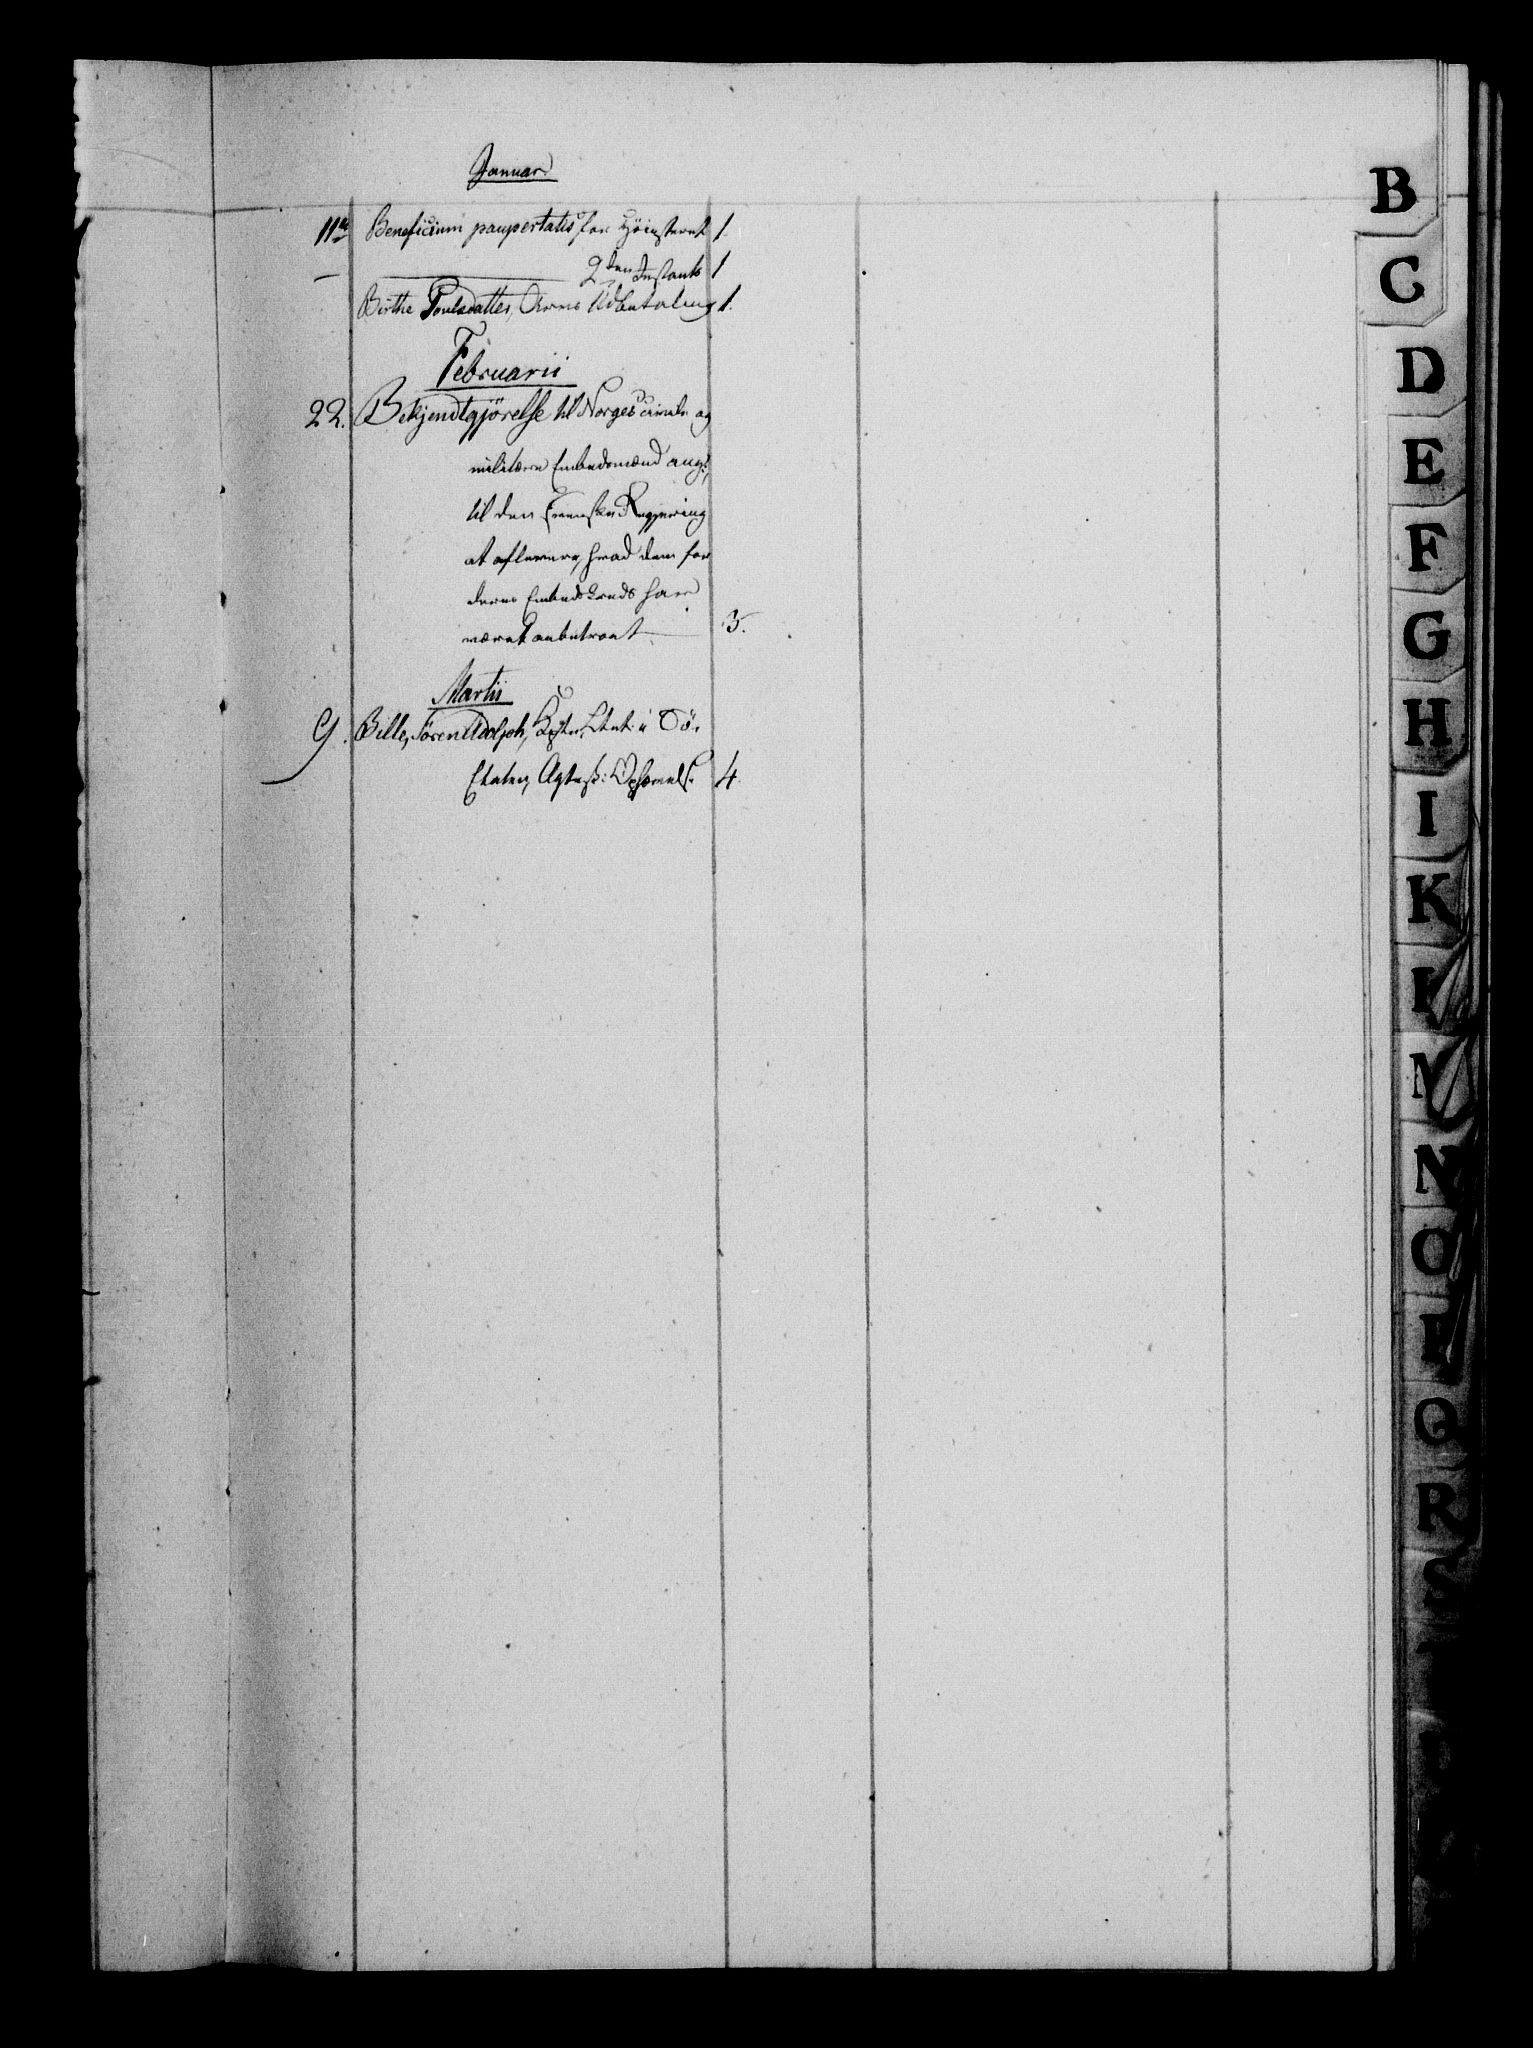 Januar
11te Beneficium paupertatis for Höiesteret 1.
— 2den Instants 1
Birthe Poulsdatter, Arvs Udbetaling 1.
Februarii
22. Bekjendtgjörelse til Norges civile og
militære Embedsmænd ang:
til den Svenske Regjering
at aflevere, hvad dem for
deres Embedskreds har
været anbetroet 3.
Martii
9. Bille, Sören Adolph, Lt: i Sö-
Etaten, 4.
B
C
D
E
F
G
H
I
K
L
M
N
O
P
Q
R
S